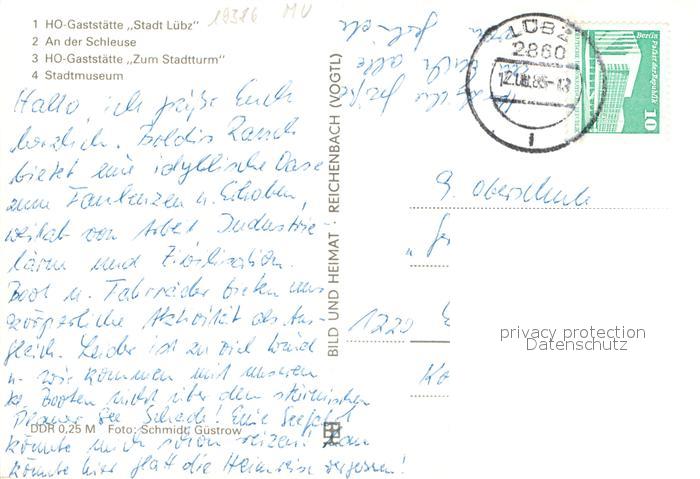 1 HO-Gaststätte „Stadt Lübz"
2 An der Schleuse
3 HO-Gaststätte „Zum Stadtturm"
4 Stadtmuseum
19316 MV
Hallo, ich grüße Euch
herzlich.
bietet eine idyllische Oase
zum Faulenzen u. Erholen,
weitab von Arbeit Industrie-
lärm und Zivilisation.
Boot u. Fahrräder bieten uns
körperliche Aktivität als Aus-
gleich. Leider ist zu viel Wind
u. wir kommen mit unseren
Booten nicht über den stürmischen
Plauer See. Schade! Eine Seefahrt
könnte mich schon reizen! Man
könnte hier glatt die Heimreise vergessen!
DDR 0,25 M Foto: Schmidt, Güstrow
BILD UND HEIMAT REICHENBACH (VOGTL)
LÜBZ
2860
12.08.85-13
Berlin Palast der Republik
10
9. Oberschule
1220
privacy protection
Datenschutz